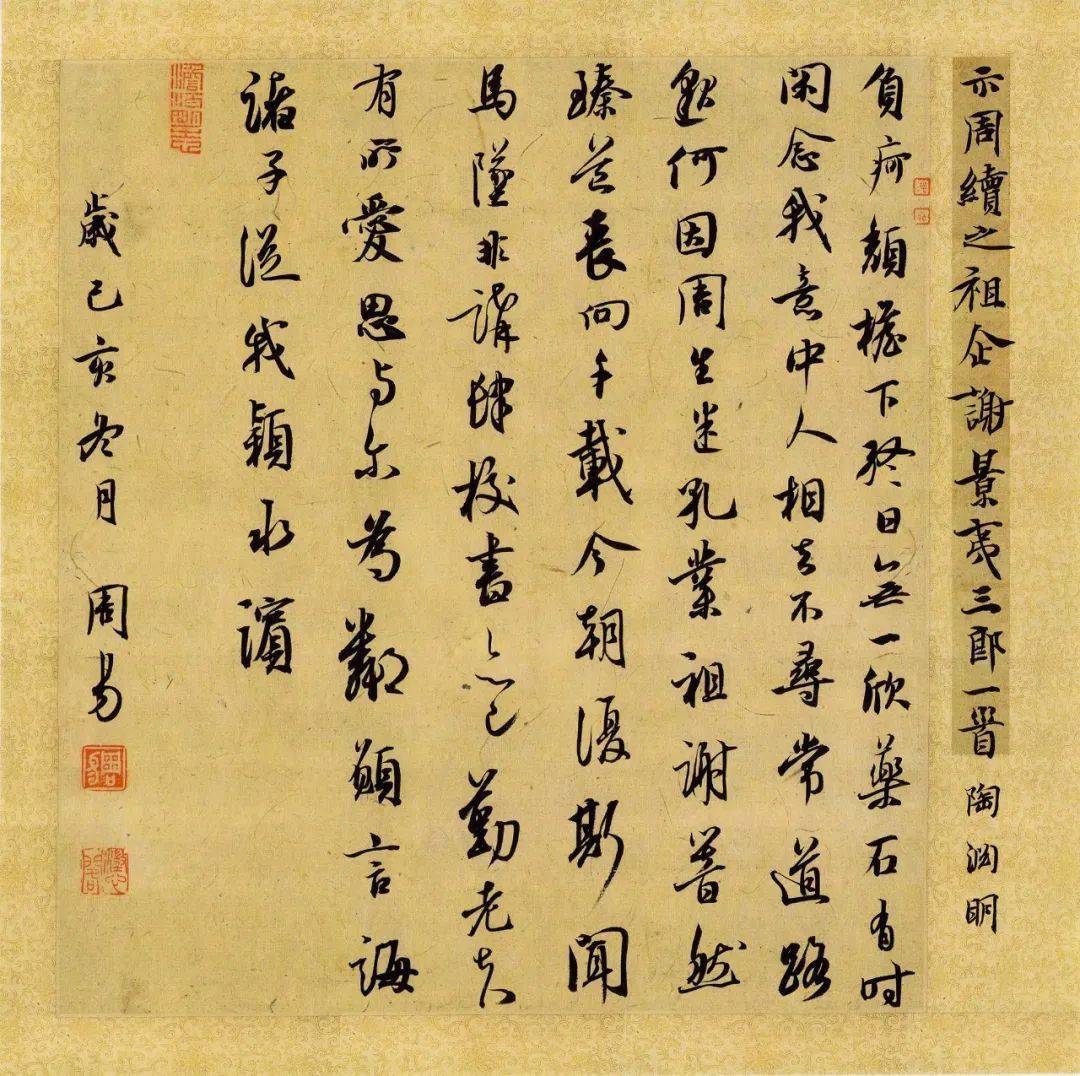 示周續之祖企謝景夷三郎一首 陶渊明
負痾頹檐下終日無一欣藥石有時
閑念我意中人相去不尋常道路
邈何因周生述孔業祖謝響然
臻道喪向千載今朝復斯聞
馬墜非講肆校書亦已勤老夫
有所愛思与尔為鄰願言誨
諸子從我潁水濱
歲己亥冬月 周易